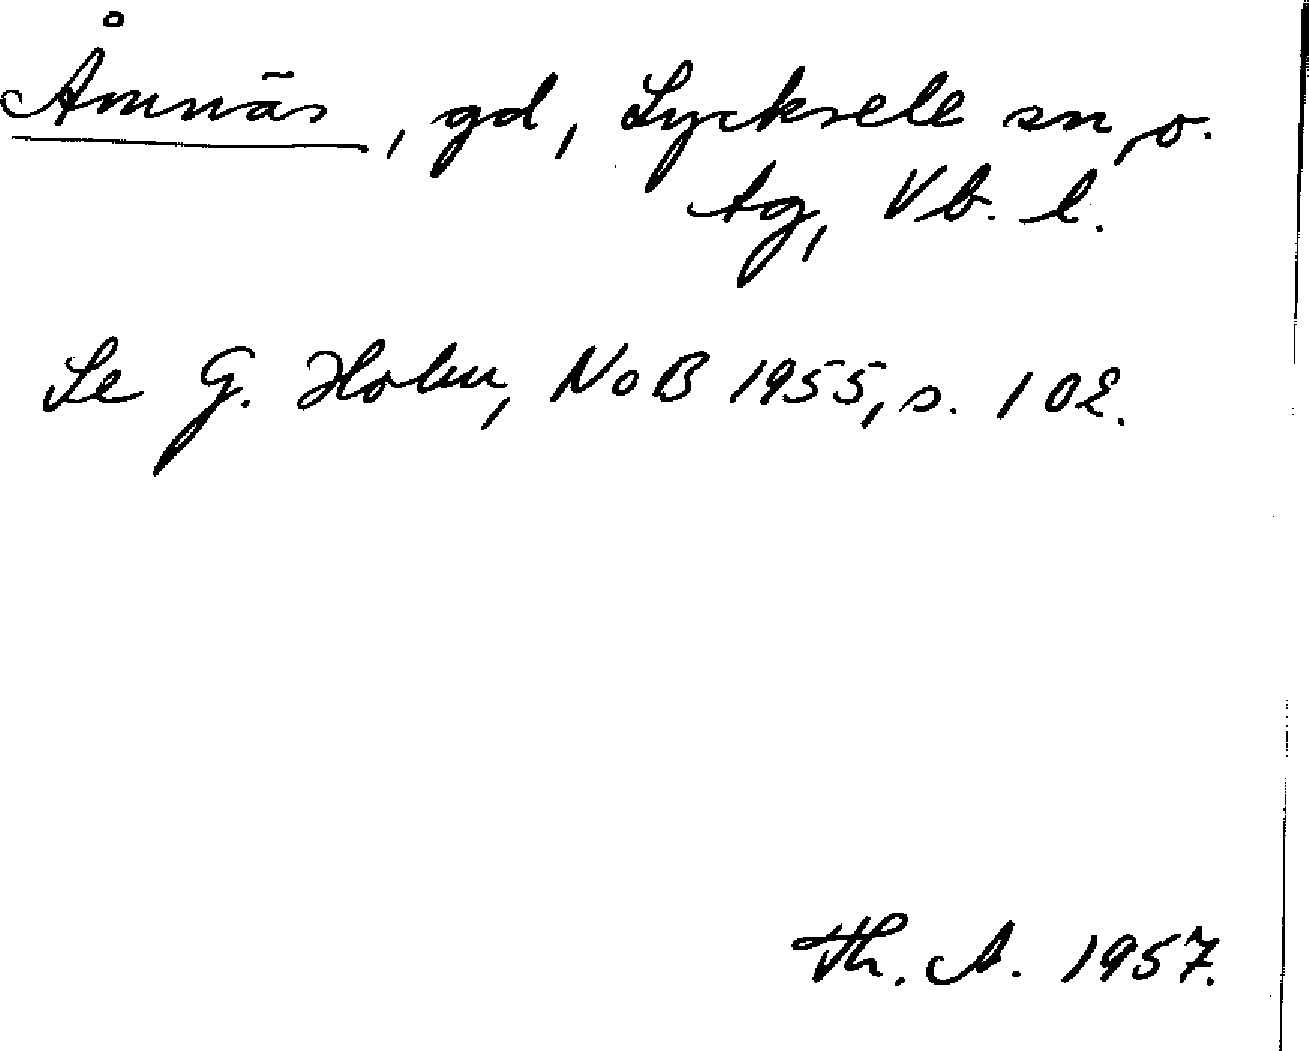 Åmnäs, gd, Lycksele sn, o.
tg, Vb. l.
Se G. Holm, NoB 1955, s. 102.
Th. A. 1957.